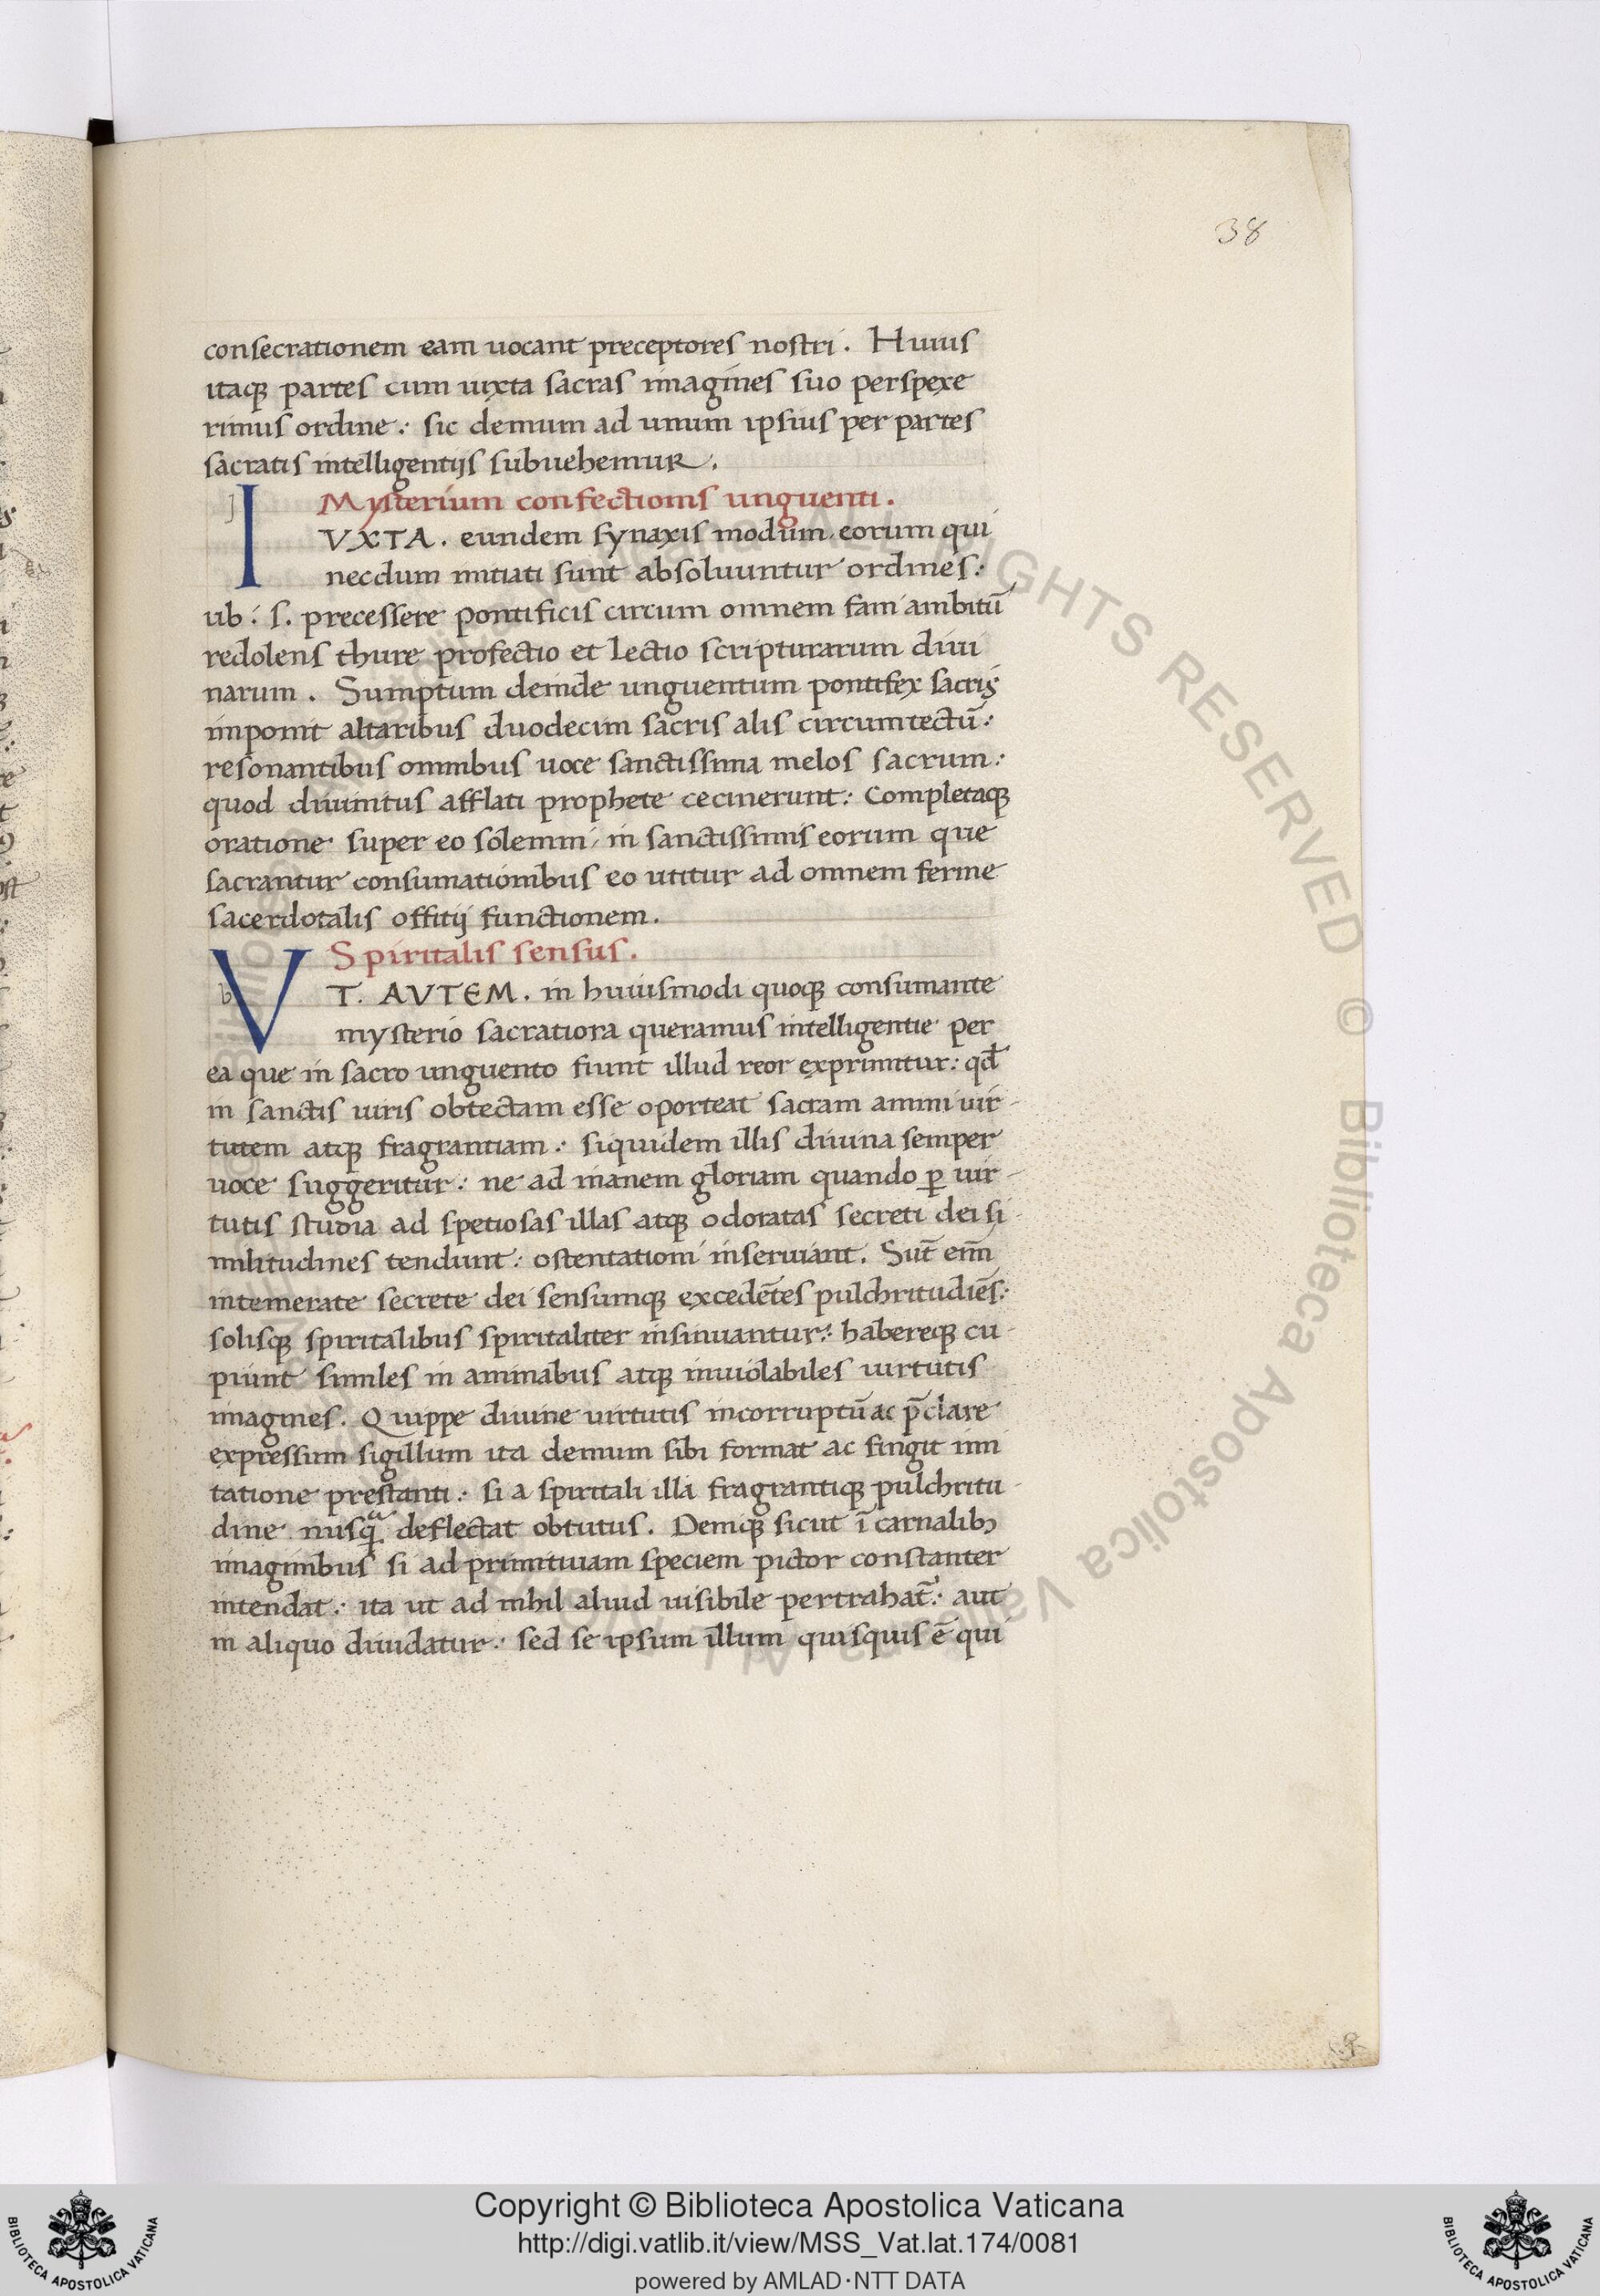 38
consecrationem eam uocant preceptores nostri. Huius
itaqꝫ partes cum iuxta sacras imagines suo perspexe
rimus ordine: sic demum ad unum ipsius per partes
sacratis intelligentijs subuehemur.
Mysterium confectionis unguenti.
IVXTA. eundem synaxis modum eorum qui
necdum initiati sunt absoluuntur ordines:
ub: s. precessere pontificis circum omnem fani ambitū
redolens thure profectio et lectio scripturarum diui
narum. Sumptum deinde unguentum pontifex sacris
imponit altaribus duodecim sacris alis circumtectū:
resonantibus omnibus uoce sanctissima melos sacrum:
quod diuinitus afflati prophete cecinerunt: Completaqꝫ
oratione super eo solemni, in sanctissimis eorum que
sacrantur consumationibus eo utitur ad omnem ferme
sacerdotalis offitij functionem.
Spiritalis sensus.
VT. AVTEM. in huiusmodi quoqꝫ consumante
mysterio sacratiora queramus intelligentie per
ea que in sacro unguento fiunt illud reor exprimitur: qđ
in sanctis uiris obtectam esse oporteat sacram animi uir-
tutem atqꝫ fragrantiam: siquidem illis diuina semper
uoce suggeritur: ne ad inanem gloriam quando ꝑ uir-
tutis studia ad spetiosas illas atqꝫ odoratas secreti dei si-
militudines tendunt: ostentationi inseruiant. Sūt em̄
intemerate secrete dei sensumqꝫ excedētes pulchritudiēs:
solisqꝫ spiritalibus spiritaliter insinuantur: habereqꝫ cu-
piunt similes in aminabus atqꝫ inuiolabiles uirtutis
imagines. Quippe diuine uirtutis incorruptū ac p̄clare
expressum sigillum ita demum sibi format ac fingit imi
tatione prestanti: si a spiritali illa fragrantiqꝫ pulchritu-
dine nusqᵃ deflectat obtutus. Deniqꝫ sicut ī carnalibꝫ
imaginibus si ad primitiuam speciem pictor constanter
intendat: ita ut ad nihil aliud uisibile pertrahat̄: aut
in aliquo diuidatur: sed se ipsum illum quisquis ē qui
© Biblioteca Apostolica Vaticana ALL RIGHTS RESERVED
Copyright © Biblioteca Apostolica Vaticana
http://digi.vatlib.it/view/MSS_Vat.lat.174/0081
powered by AMLAD·NTT DATA
BIBLIOTECA APOSTOLICA VATICANA
BIBLIOTECA APOSTOLICA VATICANA